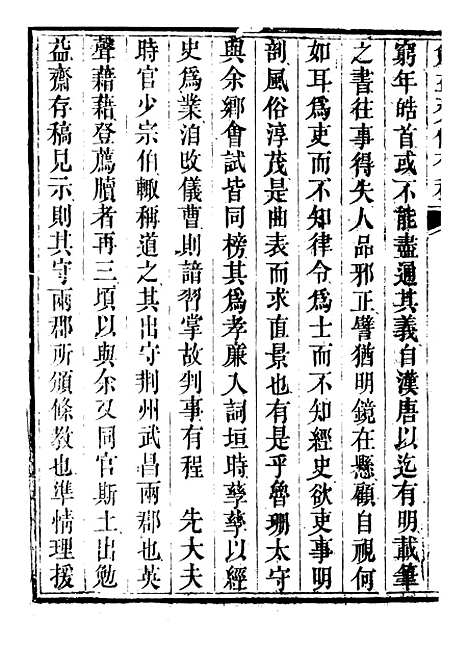 窮年皓首或不能盡通其義自漢唐以迄有明載筆
之書往事得失人品邪正譬猶明鏡在懸顧自視何
如耳爲吏而不知律令爲士而不知經史欲吏事明
剖風俗淳茂是曲表而求直景也有是乎魯珊太守
與余鄉會試皆同榜其爲孝廉入詞垣時孳孳以經
史爲業洎改儀曹則諳習掌故判事有程　先大夫
時官少宗伯輙稱道之其出守荆州武昌兩郡也英
聲藉藉登薦牘者再三頃以與余又同官斯土出勉
益齋存稿見示則其守兩郡所頒條教也準情理援